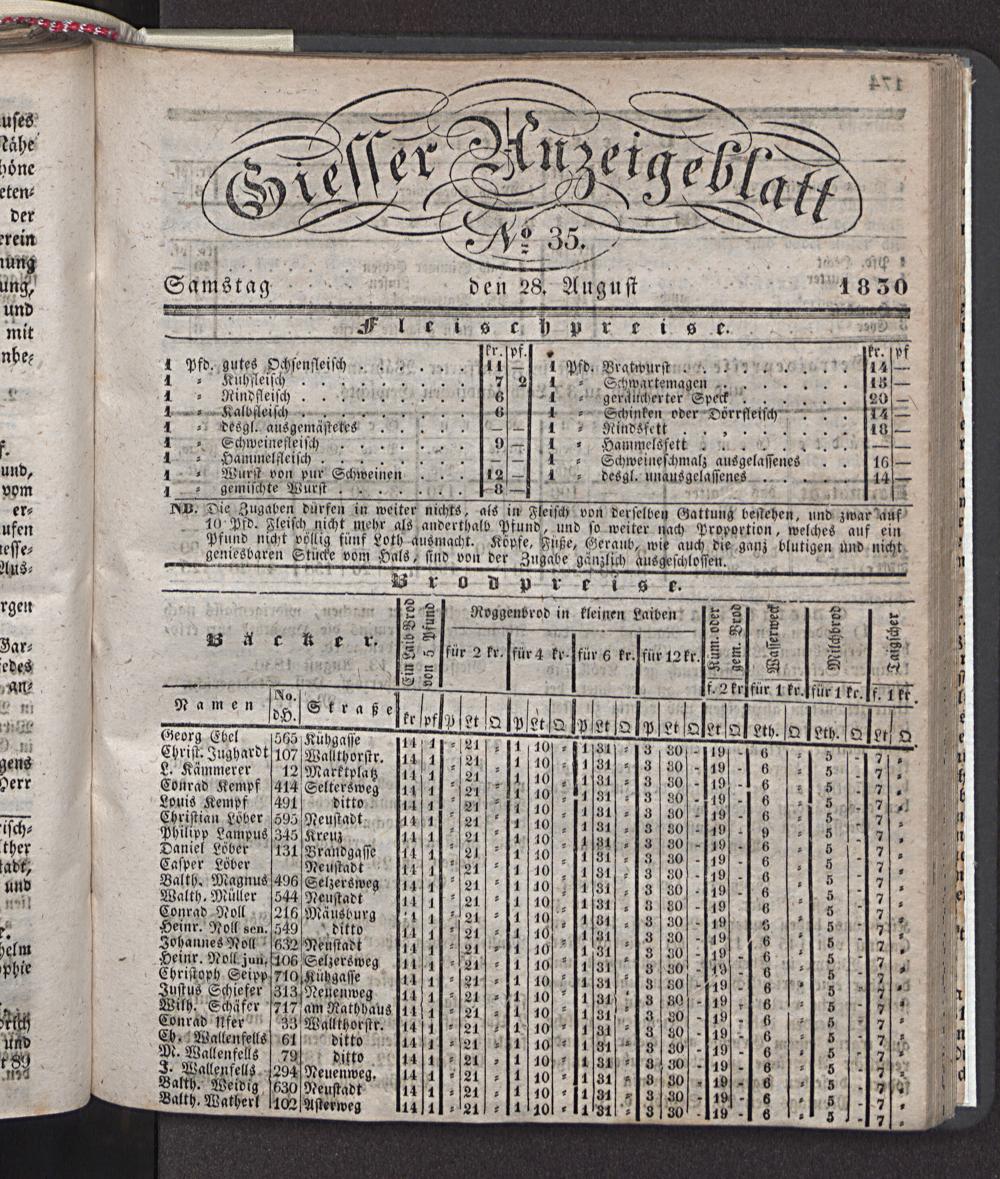 174
Giesser Anzeigeblatt
No. 35.
Samstag den 28. August 1830
Fleischpreise.
kr. pf.
1 Pfd. gutes Ochsenfleisch . . . . 11 —
1 „ Kuhfleisch . . . . 7 2
1 „ Rindfleisch . . . . 6
1 „ Kalbfleisch . . . . 6
1 „ desgl. ausgemästetes — —
1 „ Schweinefleisch . . . . 9 —
1 „ Hammelfleisch . . . . — —
1 „ Wurst von pur Schweinen 12 —
1 „ gemischte Wurst . . . . 8 —
kr. pf
1 Pfd. Bratwurst . . . . 14 —
1 „ Schwartemagen . . . . 18 —
1 „ geräucherter Speck . . . . 20 —
1 „ Schinken oder Dörrfleisch . . . . 14 —
1 „ Rindsfett . . . . 18 —
1 „ Hammelsfett . . . . — —
1 „ Schweineschmalz ausgelassenes . . . 16 —
1 „ desgl. unausgelassenes . . . . 14 —
NB. Die Zugaben dürfen in weiter nichts, als in Fleisch von derselben Gattung bestehen, und zwar auf
10 Pfd. Fleisch nicht mehr als anderthalb Pfund, und so weiter nach Proportion, welches auf ein
Pfund nicht völlig fünf Loth ausmacht. Köpfe, Füße, Geraub, wie auch die ganz blutigen und nicht
geniesbaren Stücke vom Hals, sind von der Zugabe gänzlich ausgeschlossen.
Brodpreise.
Bäcker.
Ein Laib Brod von 5 Pfund
Roggenbrod in kleinen Laiben
für 2 kr. für 4 kr. für 6 kr. für 12 kr.
Kum. oder gem. Brod f. 2 kr.
Wasserweck für 1 kr.
Milchbrod für 1 kr.
Taigscher f. 1 kr.
Namen No. d.H. Straße kr pf P Lt Q P Lt Q P Lt Q P Lt Q Lt Q Lth. Q Lth. Q Lt Q
Georg Ebel 565 Kühgasse 14 1 „ 21 „ 1 10 „ 1 31 „ 3 30 - 19 - 6 „ 5 - 7 „
Christ. Jughardt 107 Wallthorstr. 14 1 „ 21 „ 1 10 „ 1 31 „ 3 30 - 19 - 6 „ 5 - 7 „
L. Kämmerer 12 Marktplatz 14 1 „ 21 „ 1 10 „ 1 31 „ 3 30 - 19 - 6 „ 5 - 7 „
Conrad Kempf 414 Seltersweg 14 1 „ 21 „ 1 10 „ 1 31 „ 3 30 - 19 - 6 „ 5 - 7 „
Louis Kempf 491 ditto 14 1 „ 21 „ 1 10 „ 1 31 „ 3 30 - 19 - 6 „ 5 - 7 „
Christian Löber 595 Neustadt 14 1 „ 21 „ 1 10 „ 1 31 „ 3 30 - 19 - 6 „ 5 - 7 „
Philipp Lampus 345 Kreuz 14 1 „ 21 „ 1 10 „ 1 31 „ 3 30 - 19 - 9 „ 5 - 7 „
Daniel Löber 131 Brandgasse 14 1 „ 21 „ 1 10 „ 1 31 „ 3 30 - 19 - 6 „ 5 - 7 „
Casper Löber Neustadt 14 1 „ 21 „ 1 10 „ 1 31 „ 3 30 - 19 - 6 „ 5 - 7 „
Balth. Magnus 496 Selzersweg 14 1 „ 21 „ 1 10 „ 1 31 „ 3 30 - 19 - 6 „ 5 - 7 „
Balth. Müller 544 Neustadt 14 1 „ 21 „ 1 10 „ 1 31 „ 3 30 - 19 - 6 „ 5 - 7 „
Conrad Noll 216 Mäusburg 1 „ 21 „ 1 10 „ 1 31 „ 3 30 - 19 - 6 „ 5 - 7 „
Heinr. Noll sen. 549 ditto 14 1 „ 21 „ 1 10 „ 1 31 „ 3 30 - 19 - 5 „ 5 - 7 „
Johannes Noll 632 Neustadt 14 1 „ 21 „ 1 10 „ 1 31 „ 3 30 - 19 - 6 „ 5 - 7 „
Heinr. Noll jun. 106 Selzersweg 14 1 „ 21 „ 1 10 „ 1 31 „ 3 30 - 19 - 6 „ 5 - 7 „
Christoph Seipp 710 Kühgasse 14 1 „ 21 „ 1 10 „ 1 31 „ 3 30 - 19 - 6 „ 5 - 7 „
Justus Schiefer 313 Neuenweg 14 1 „ 21 „ 1 10 „ 1 31 „ 3 30 - 19 - 6 „ 5 - 7 „
Wilh. Schäfer 717 am Rathhaus 14 1 „ 21 „ 1 10 „ 1 31 „ 3 30 - 19 - 6 „ 5 - 7 „
Conrad Ufer 33 Wallthorstr. 14 1 „ 21 „ 1 10 „ 1 31 „ 3 30 - 19 - 6 „ 5 - 7 „
Ch. Wallenfells 61 ditto 14 1 „ 21 „ 1 10 „ 1 31 „ 3 30 - 19 - 6 „ 5 - 7 „
M. Wallenfells 79 ditto 14 1 „ 21 „ 1 10 „ 1 31 „ 3 30 - 19 - 6 „ 5 - 7 „
J. Wallenfells 294 Neuenweg. 14 1 „ 21 „ 1 10 „ 1 31 „ 3 30 - 19 - 6 „ 5 - 7 „
Balth. Weidig 630 Neustadt 14 1 „ 21 „ 1 10 „ 1 31 „ 3 30 - 19 - 6 „ 5 - 7 „
Balth. Watherl 102 Asterweg 14 1 „ 21 „ 1 10 „ 1 31 „ 3 30 - 19 - 6 „ 5 - 7 „